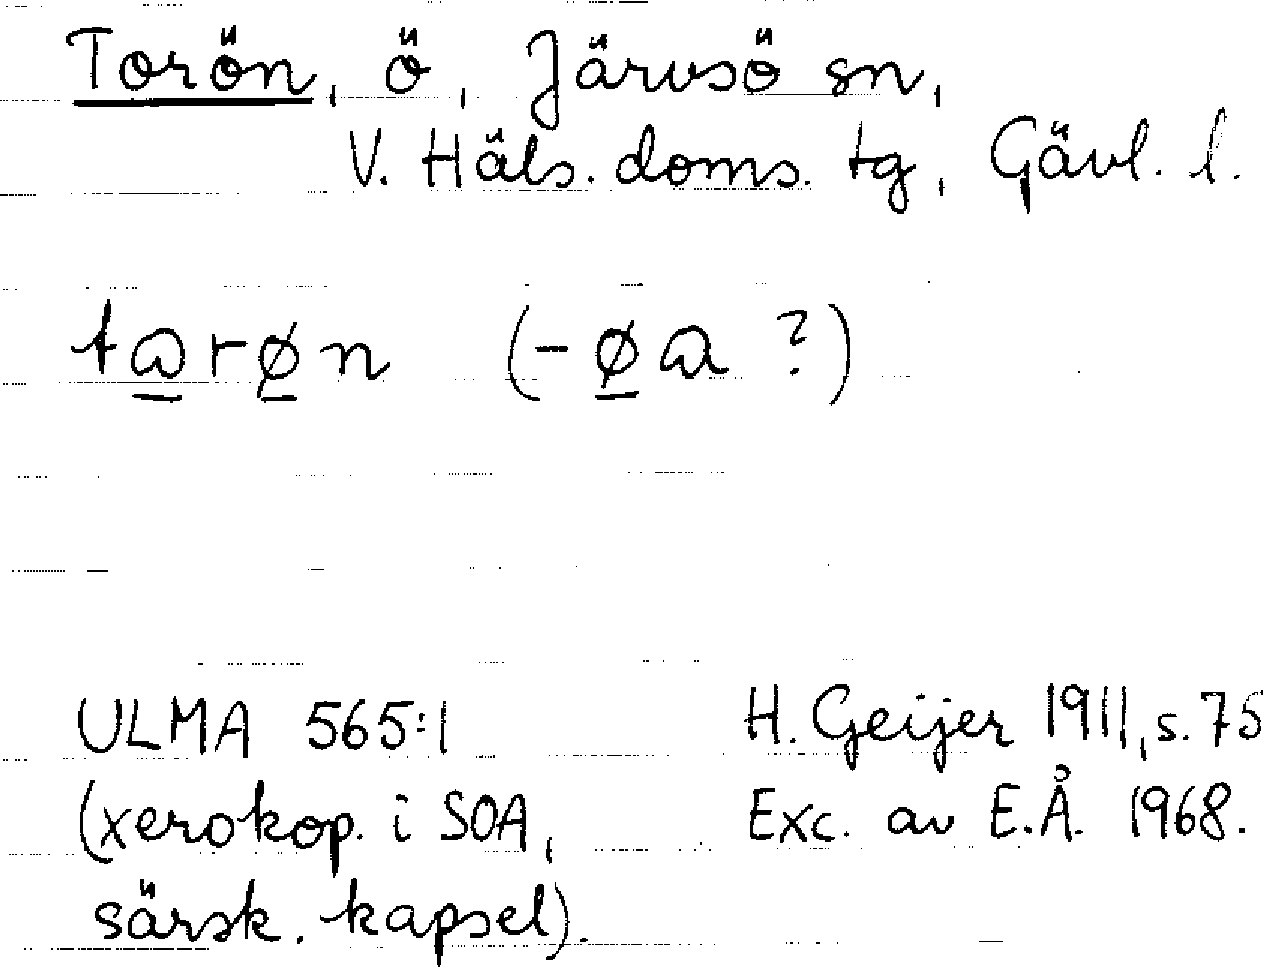 Torön, ö, Järvsö sn,
V. Häls. doms. tg, Gävl. l.
tɷrøn (-øɷ ?)
ULMA 565:1 H. Geijer 1911, s. 75
(xerokop. i SOA, Exc. av E.Å. 1968.
särsk. kapsel).